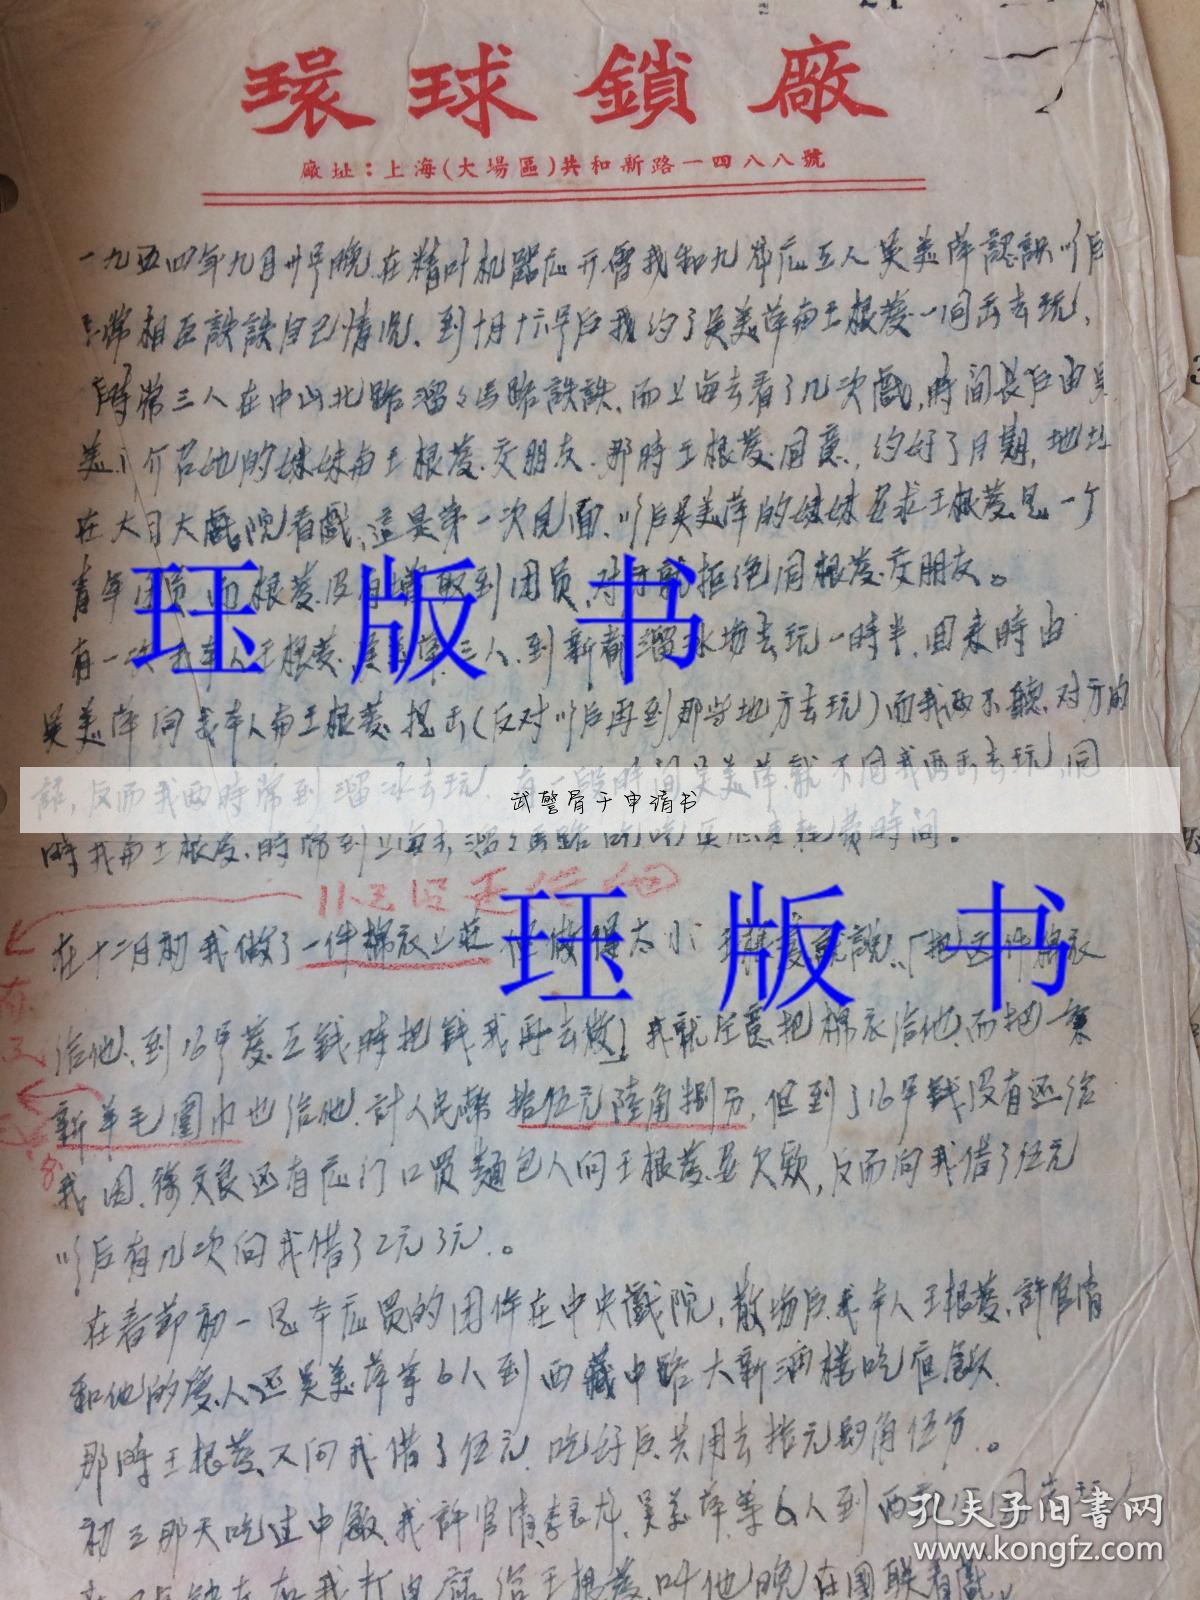 環球鎖廠
廠址：上海(大場區)共和新路一四八八號
一九五四年九月卅号晚在 机器厂开會我和九 厂工人吴美萍認識以后
常相互談談自己情况、到十月十六号后我约了吴美萍与王根發一同出去玩，
時常三人在中山北路溜々馬路談談、而上海去看了几次戲，時间長后由吴
美 介召他的妹妹与王根發交朋友、那時王根發同意，约好了日期，地址
在大 大戲院看戲，這是第一次見面、以后吴美萍的妹妹要求王根發是一个
青年团员 而根發没有 取到团员，对方就拒绝同根發交朋友。
有一次 本人王根發、吴美萍三人、到新都溜冰场去玩一時半，回来時由
吴美萍向我本人与王根發提出(反对以后再到那些地方去玩)而我两不聽、对方的
話，反而我两時常到溜冰去玩、有一段時间吴美萍就不同我两出去玩，同
武警骨干申请书
時我与王根發、時常到上海去溜々馬路 時间。
在十二月初我做了一件棉衣 做得太小 王根發就說、「把这件棉衣
给他、到16号發工錢時把錢我再去做」我就任意把棉衣给他、而把一条
新羊毛圍巾也给他、計人民幣拾伍元陸角捌分，但到了16号錢没有还给
我、因、徐文良还有厂门口買麵包人向王根發要欠款，反而向我借了伍元
以后有几次向我借了2元3元、。
在春節初一 本厂 的团 在中央戲院，散场后我本人王根發、許官清
和他的爱人还吴美萍等6人到西藏中路大新酒楼吃 飯、
那時王根發又向我借了伍元、吃好后共用去拾元 角伍分、。
初三那天吃过中飯我許官清李良 、吴美萍等6人到西
在 我打电話给王根發、叫他晚在國联看戲。
珏版书
珏版书
孔夫子旧書网
www.kongfz.com